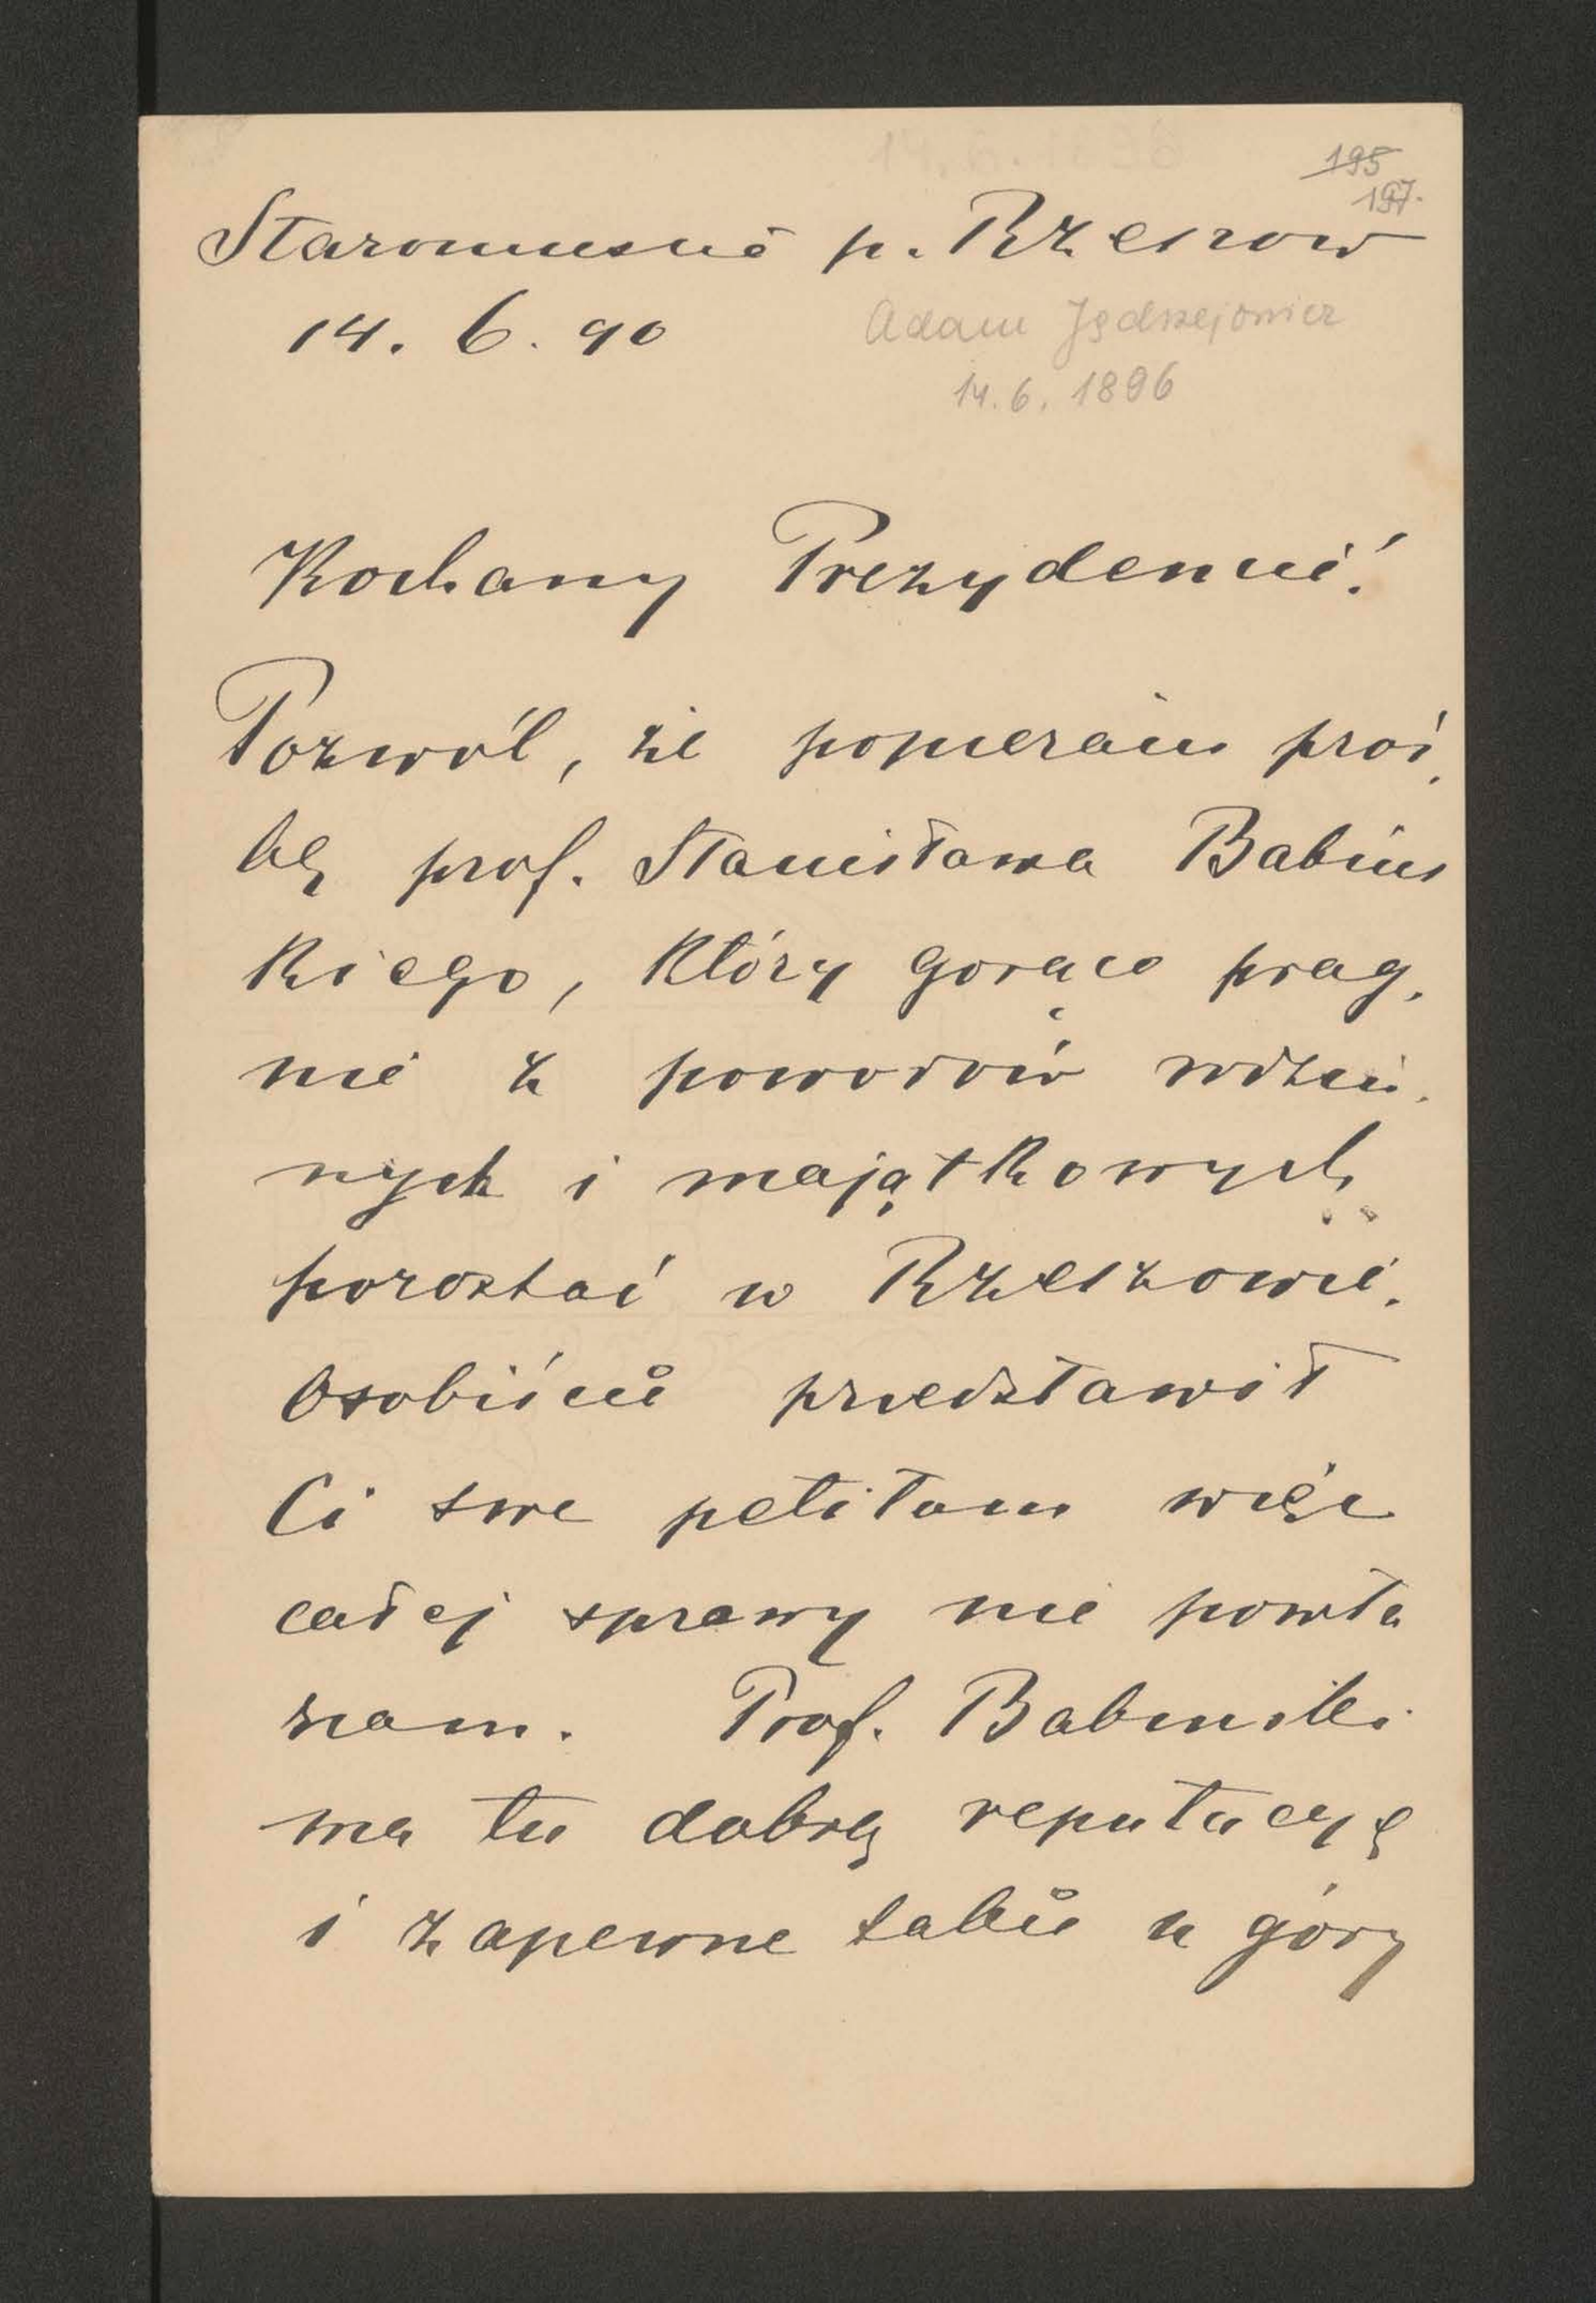 195
197.
Staromieście p. Rzeszow
14. 6. 90
Adam Jędrzejowicz
14. 6. 1896
Kochany Prezydencie!
Pozwól, że popieram proś,
bę prof. Stanisława Babińs
kiego, który gorąco prag,
nie z powodów rodzin,
nych i majątkowych
pozostać w Rzeszowie.
Osobiście przedstawił
Ci swe petitum więc
całej sprawy nie powta
rzam. Prof. Babinski
ma tu dobrą reputacyę
i zapewne także u góry